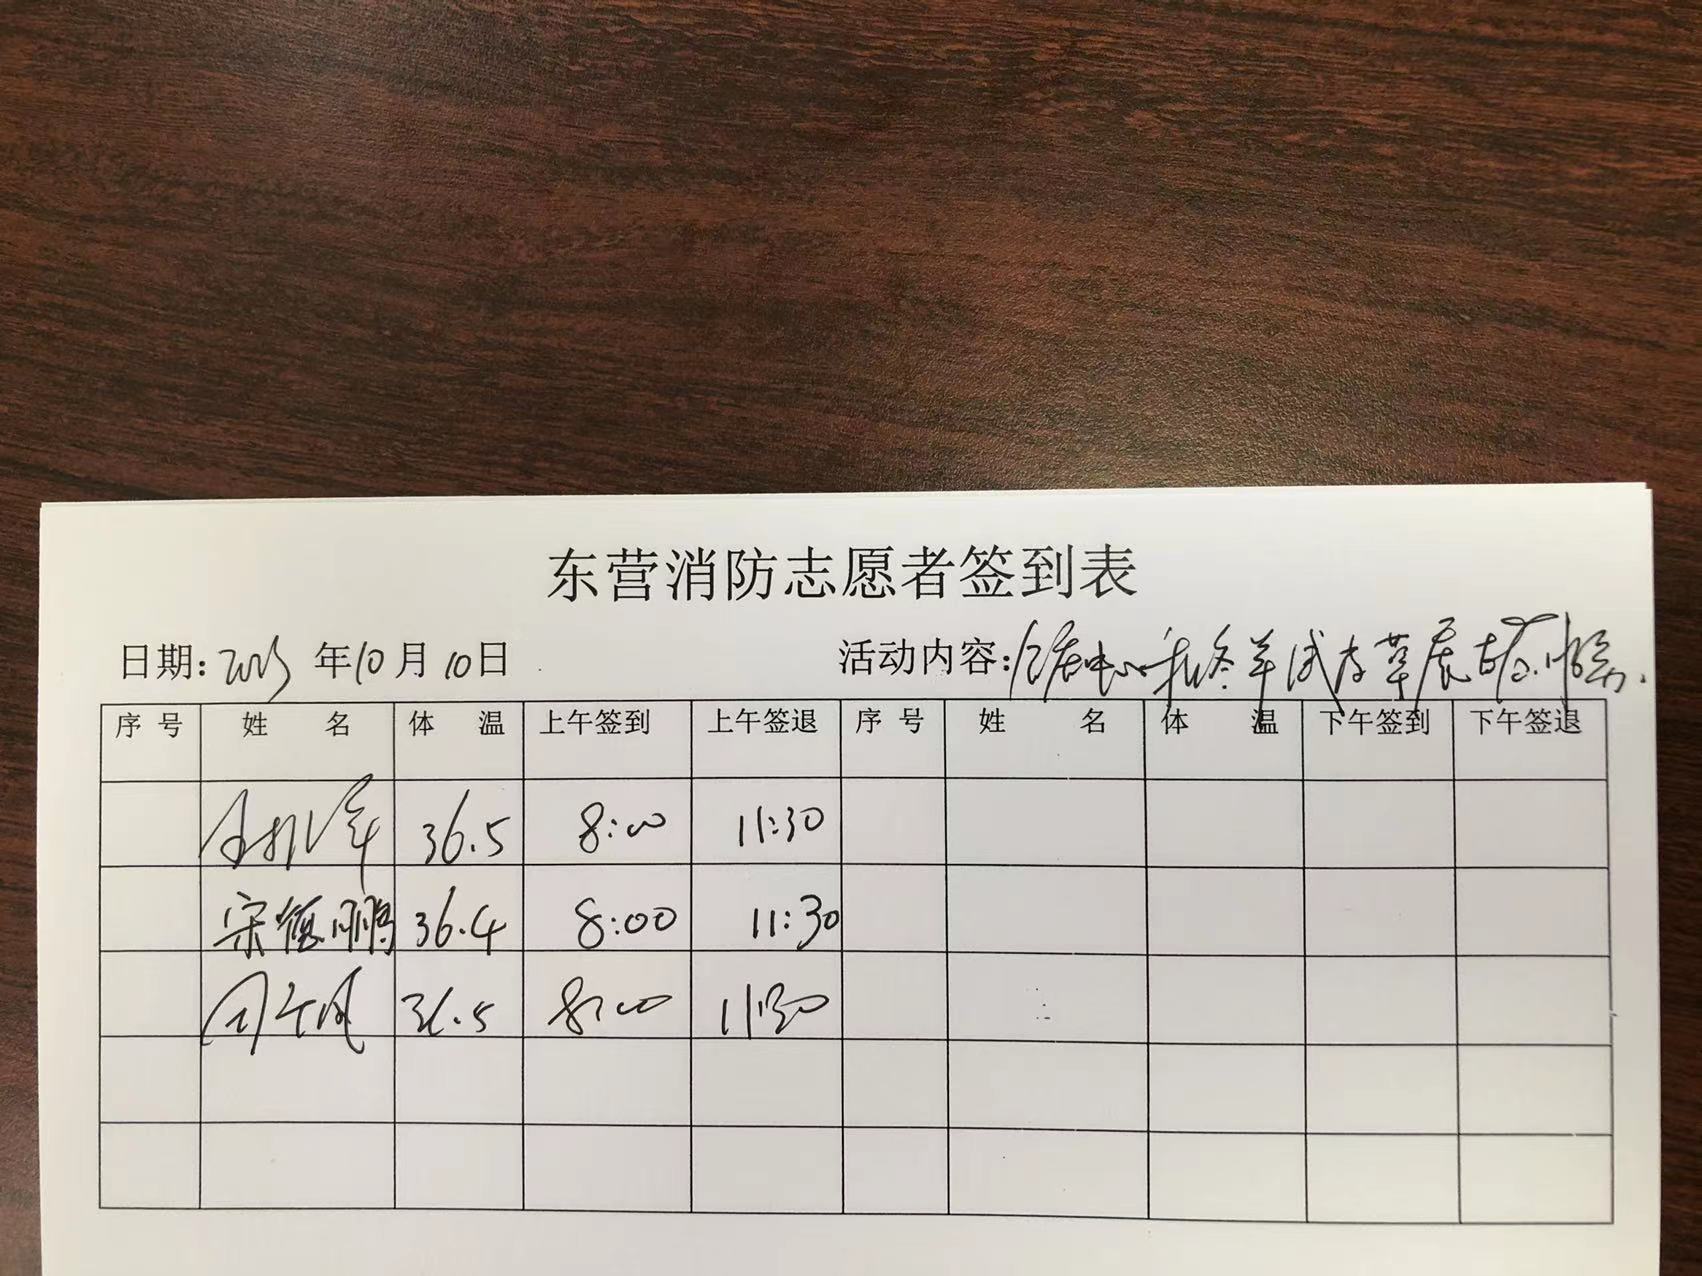 东营消防志愿者签到表
日期: 2023 年 10 月 10 日 活动内容:
序号 姓名 体温 上午签到 上午签退 序号 姓名 体温 下午签到 下午签退
36.5 8:00 11:30
宋德鹏 36.4 8:00 11:30
36.5 8:00 11:30